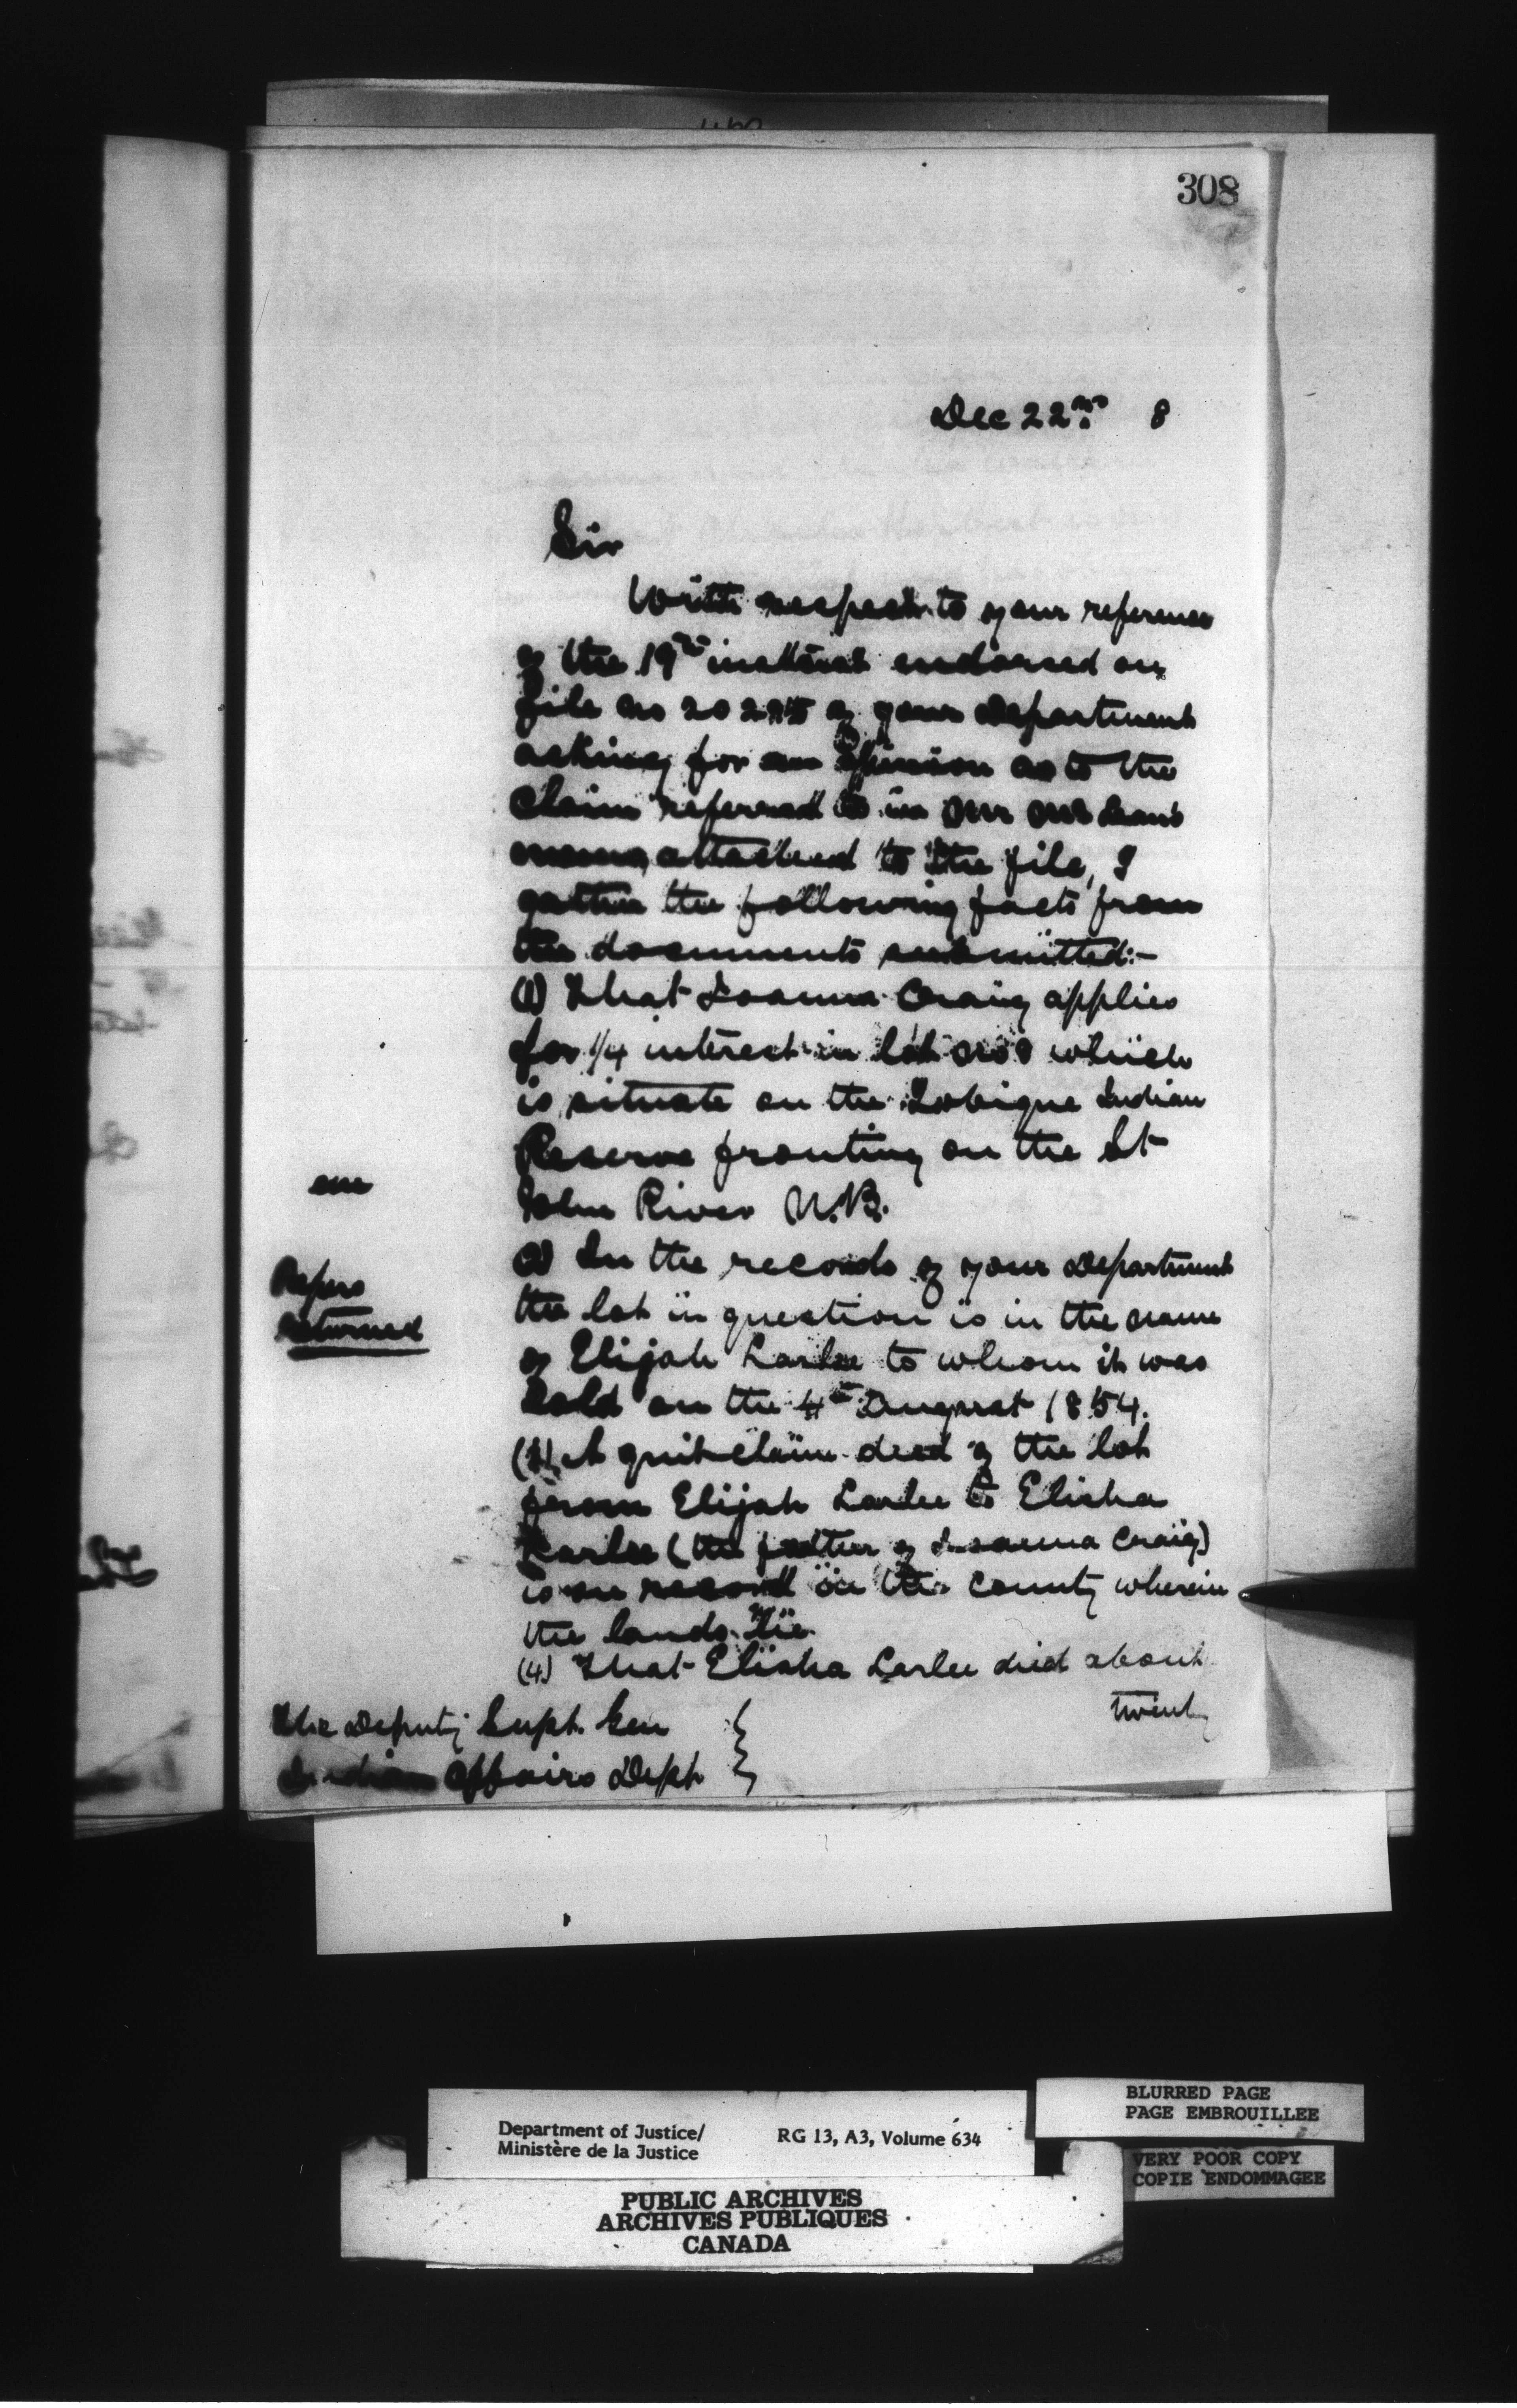 308
Dec 22nd 8
Sir
With respect to your reference
of the 19th instant endorsed on
file no of your Department
asking for an opinion as to the
claim referred to in
memo attached to the file, I
gather the following facts from
the documents submitted:-
(1) That Loanna Craig applies
for 1/4 interest in lot no 8 which
is situate on the Tobique Indian
Reserve fronting on the St
John River N.B.
(2) In the records of your Department
the lot in question is in the name
of Elijah Larlee to whom it was
sold on the 4th August 1854.
(3) A quit claim deed of the lot
from Elijah Larlee to Elisha
Larlee (the father of Craig)
is on record in the County wherein
the lands lie.
(4) That Elisha Larlee died about
twenty
Papers
returned
The Deputy Supt. Gen
Indian Affairs Dept
Department of Justice/
Ministère de la Justice
RG 13, A3, Volume 634
BLURRED PAGE
PAGE EMBROUILLEE
VERY POOR COPY
COPIE ENDOMMAGEE
PUBLIC ARCHIVES
ARCHIVES PUBLIQUES
CANADA